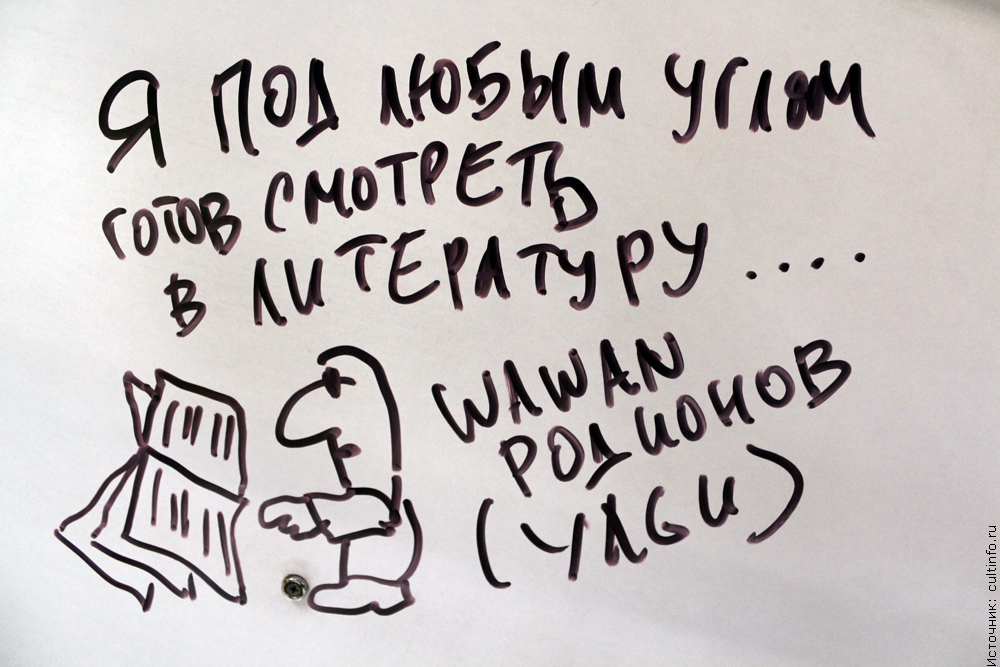 Я ПОД ЛЮБЫМ УГЛЯМ
ГОТОВ СМОТРЕТЬ
В ЛИТЕРАТУРУ ....
WAWAN
РОДИОНОВ
(УЛGИ)
Источник: cultinfo.ru